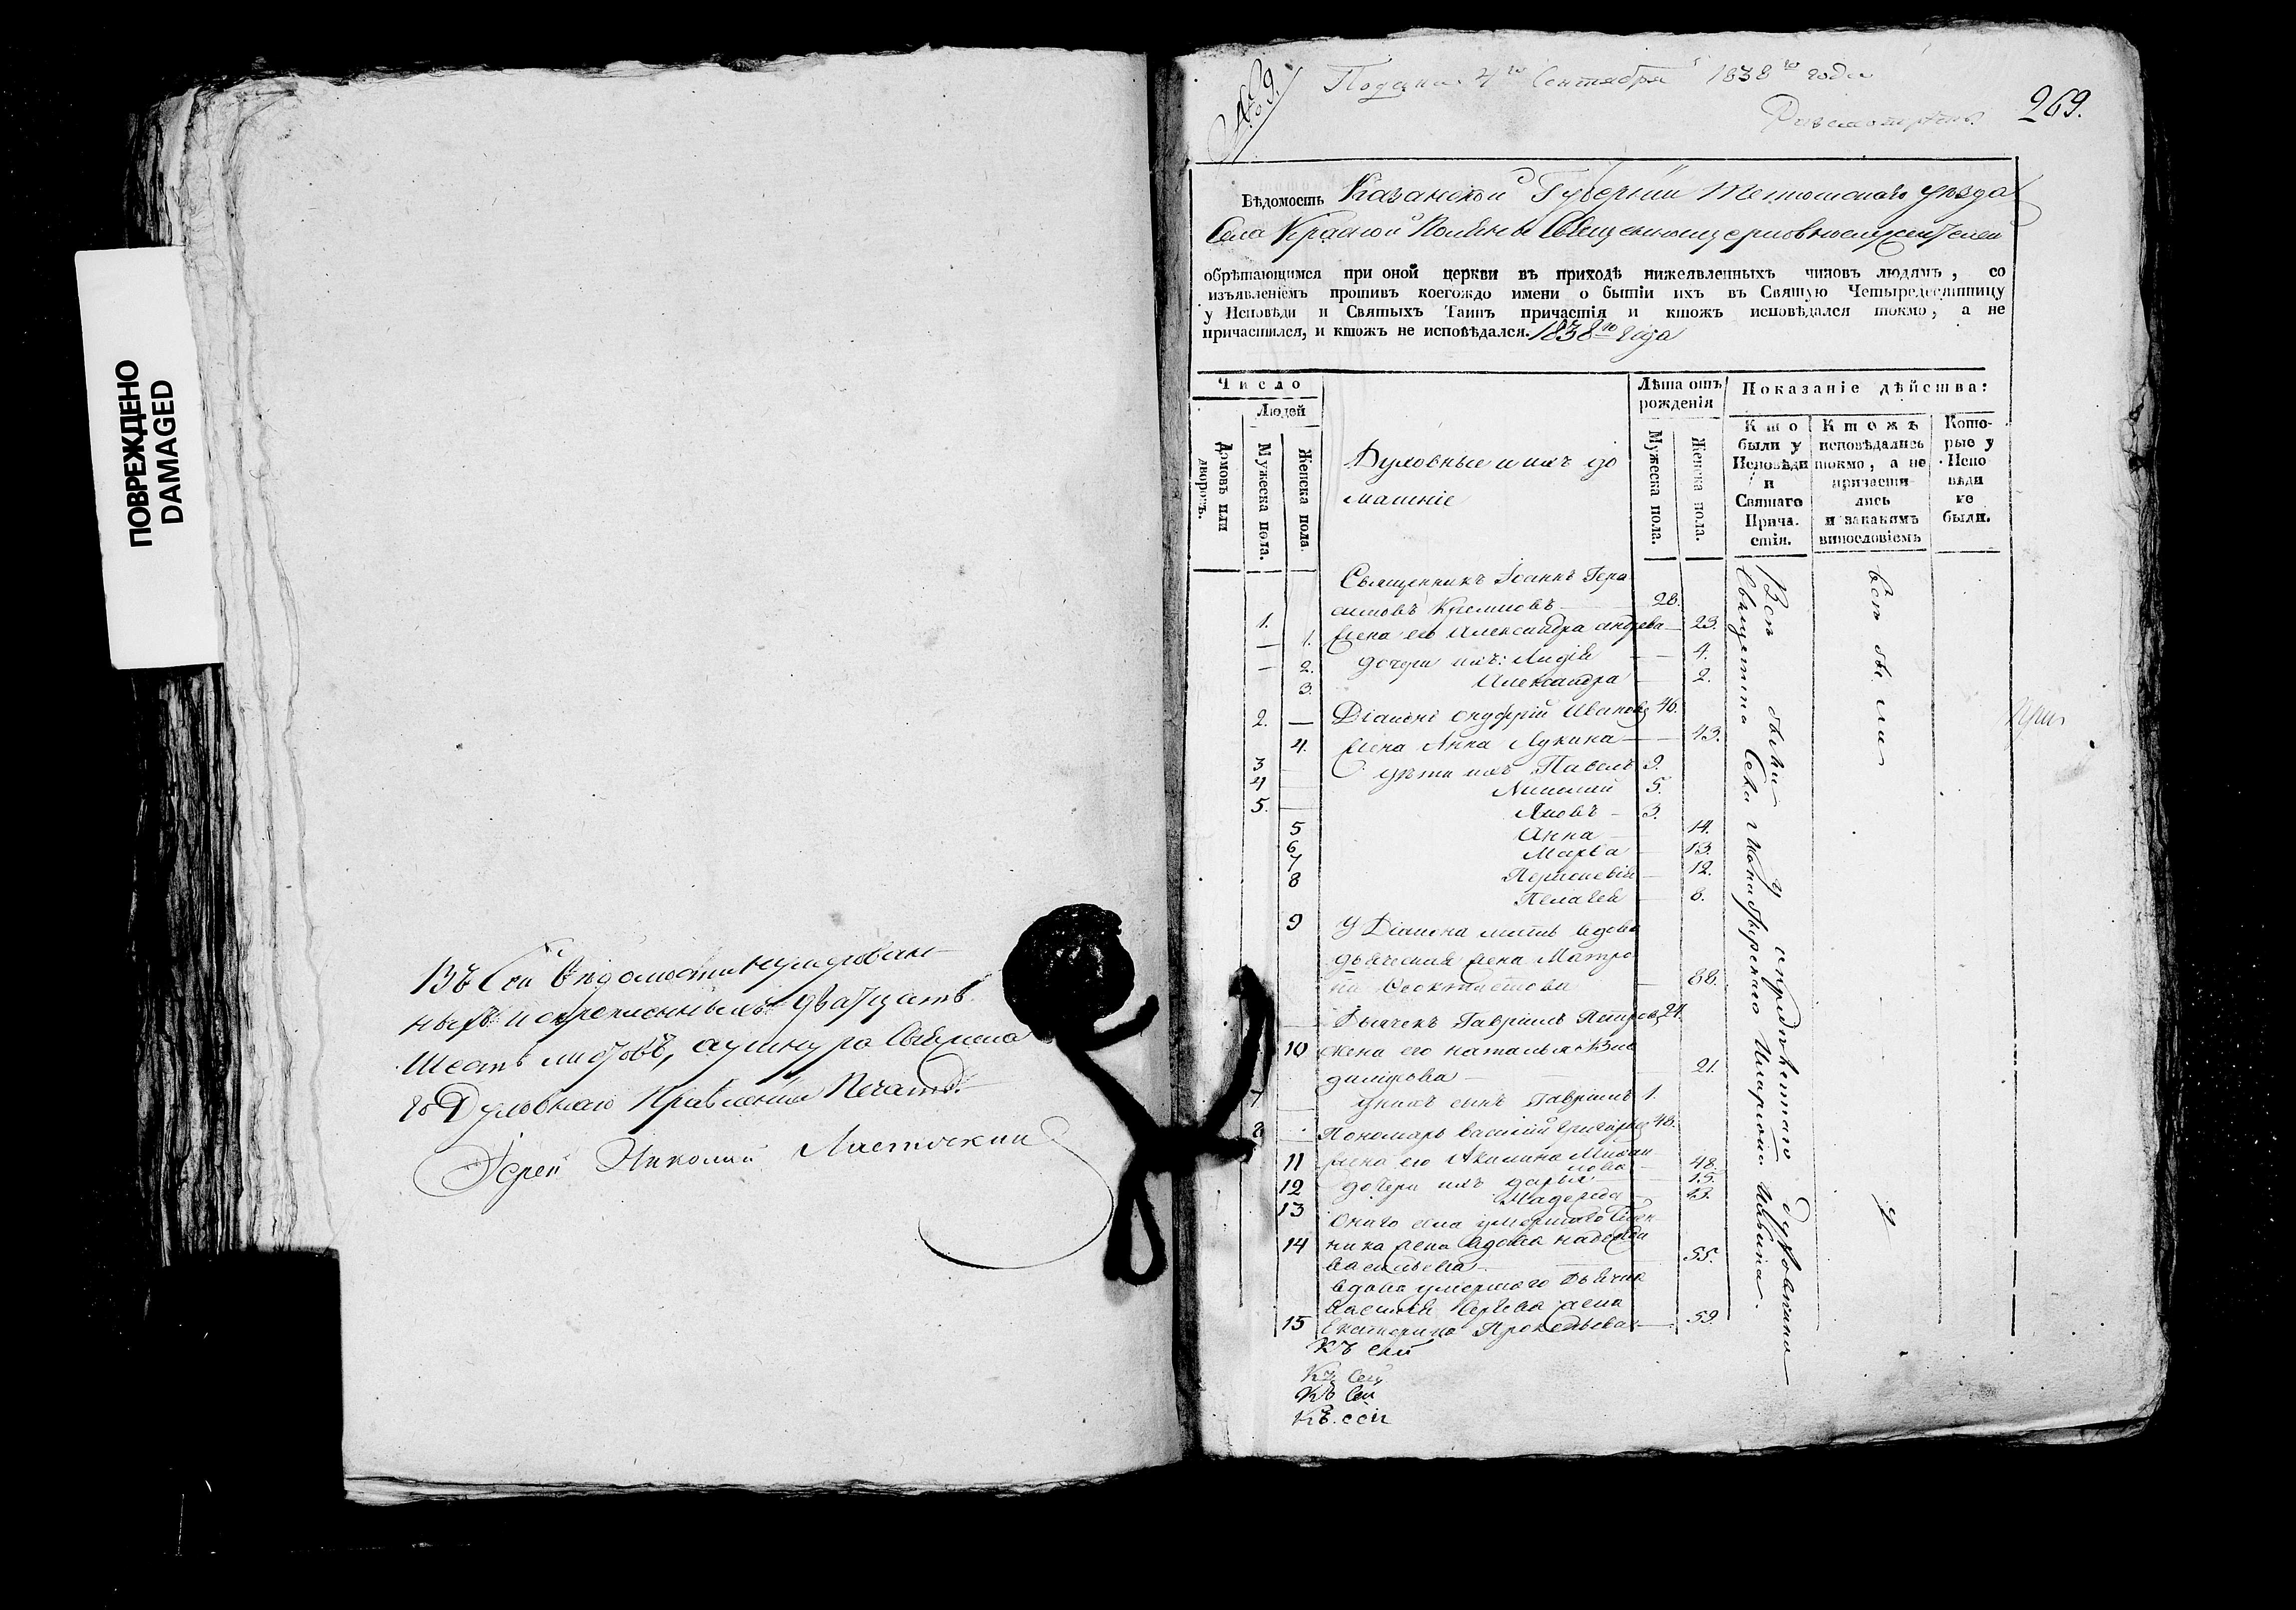 ПОВРЕЖДЕНО
DAMAGED
Въ сей Ведомости нумерован
ныхъ и скрепленныхъ двадцать
шесть листовъ, а у шнура Свияжска
го Духовнаго Правленія печать.
Іерей Николай Ласточкин
№ 9.
Подана 4го Сентября 1838го года
269.
Вѣдомость Казанской Губерніи Тетюшскаго уѣзда
Села Красной Поляны Священноцерковнослужителей
обрѣтающимся при оной церкви въ приходѣ нижеявленныхъ чиновъ людямъ, со
изъявленіемъ противъ коегождо имени о бытіи ихъ въ Святую Четыредесятницу
у Исповѣди и Святыхъ Таинъ причастія и ктожъ исповѣдался токмо, а не
причастился, и ктожъ не исповѣдался. 1838го года
Число
Людей
Домовъ или дворовъ.
Мужеска пола.
Женска пола.
Духовные и ихъ до
машніе
Лѣта отъ
рожденія
Мужеска пола.
Женска пола.
Показаніе дѣйства:
Кто
были у
Исповѣди
и
Святаго
Прича-
стія.
Ктожъ
исповѣдались
токмо, а не
причасти-
лись
и закакимъ
винословіемъ
Кото-
рые у
Испо
вѣди
не
были.
Священникъ Іоаннъ Гера
симовъ 28.
1.
— 1. жена его Александра Андрева — 23.
— 2. дочери ихъ: Лидія — 4.
3. Александра — 2.
2. — Діаконъ Онуфрій Ивановъ 46.
4. жена Анна Лукина — 43.
3 дѣти ихъ Павелъ 9.
4 Николай 5.
5. Яковъ — 3.
5 Анна — 14.
6 Марѳа — 13.
7 Парасковія — 12.
8 Пелагея — 8.
9 У Діакона мать вдова
дьяческая жена Матро
на Ѳеоктистова — 88.
Дьячекъ Гавріилъ Петровъ 24.
10 жена его наталья
21.
7 у нихъ сынъ Гавріилъ 1.
8 Пономарь василій Григорьевъ 48.
11 жена его Акилина Михаи
лова — 48.
12 дочери ихъ дарья — 15.
13 Надежда — 13.
Онаго села умершаго Священ
14 ника жена вдова надежда
васильева — 55.
вдова умершаго Дьячка
василья жена
15 Екатерина Прокопьева — 59.
Къ сей
Къ сей
Къ сей
Къ сей
Всѣ были у
духовника
Священника Села
Иларіона
всѣ были